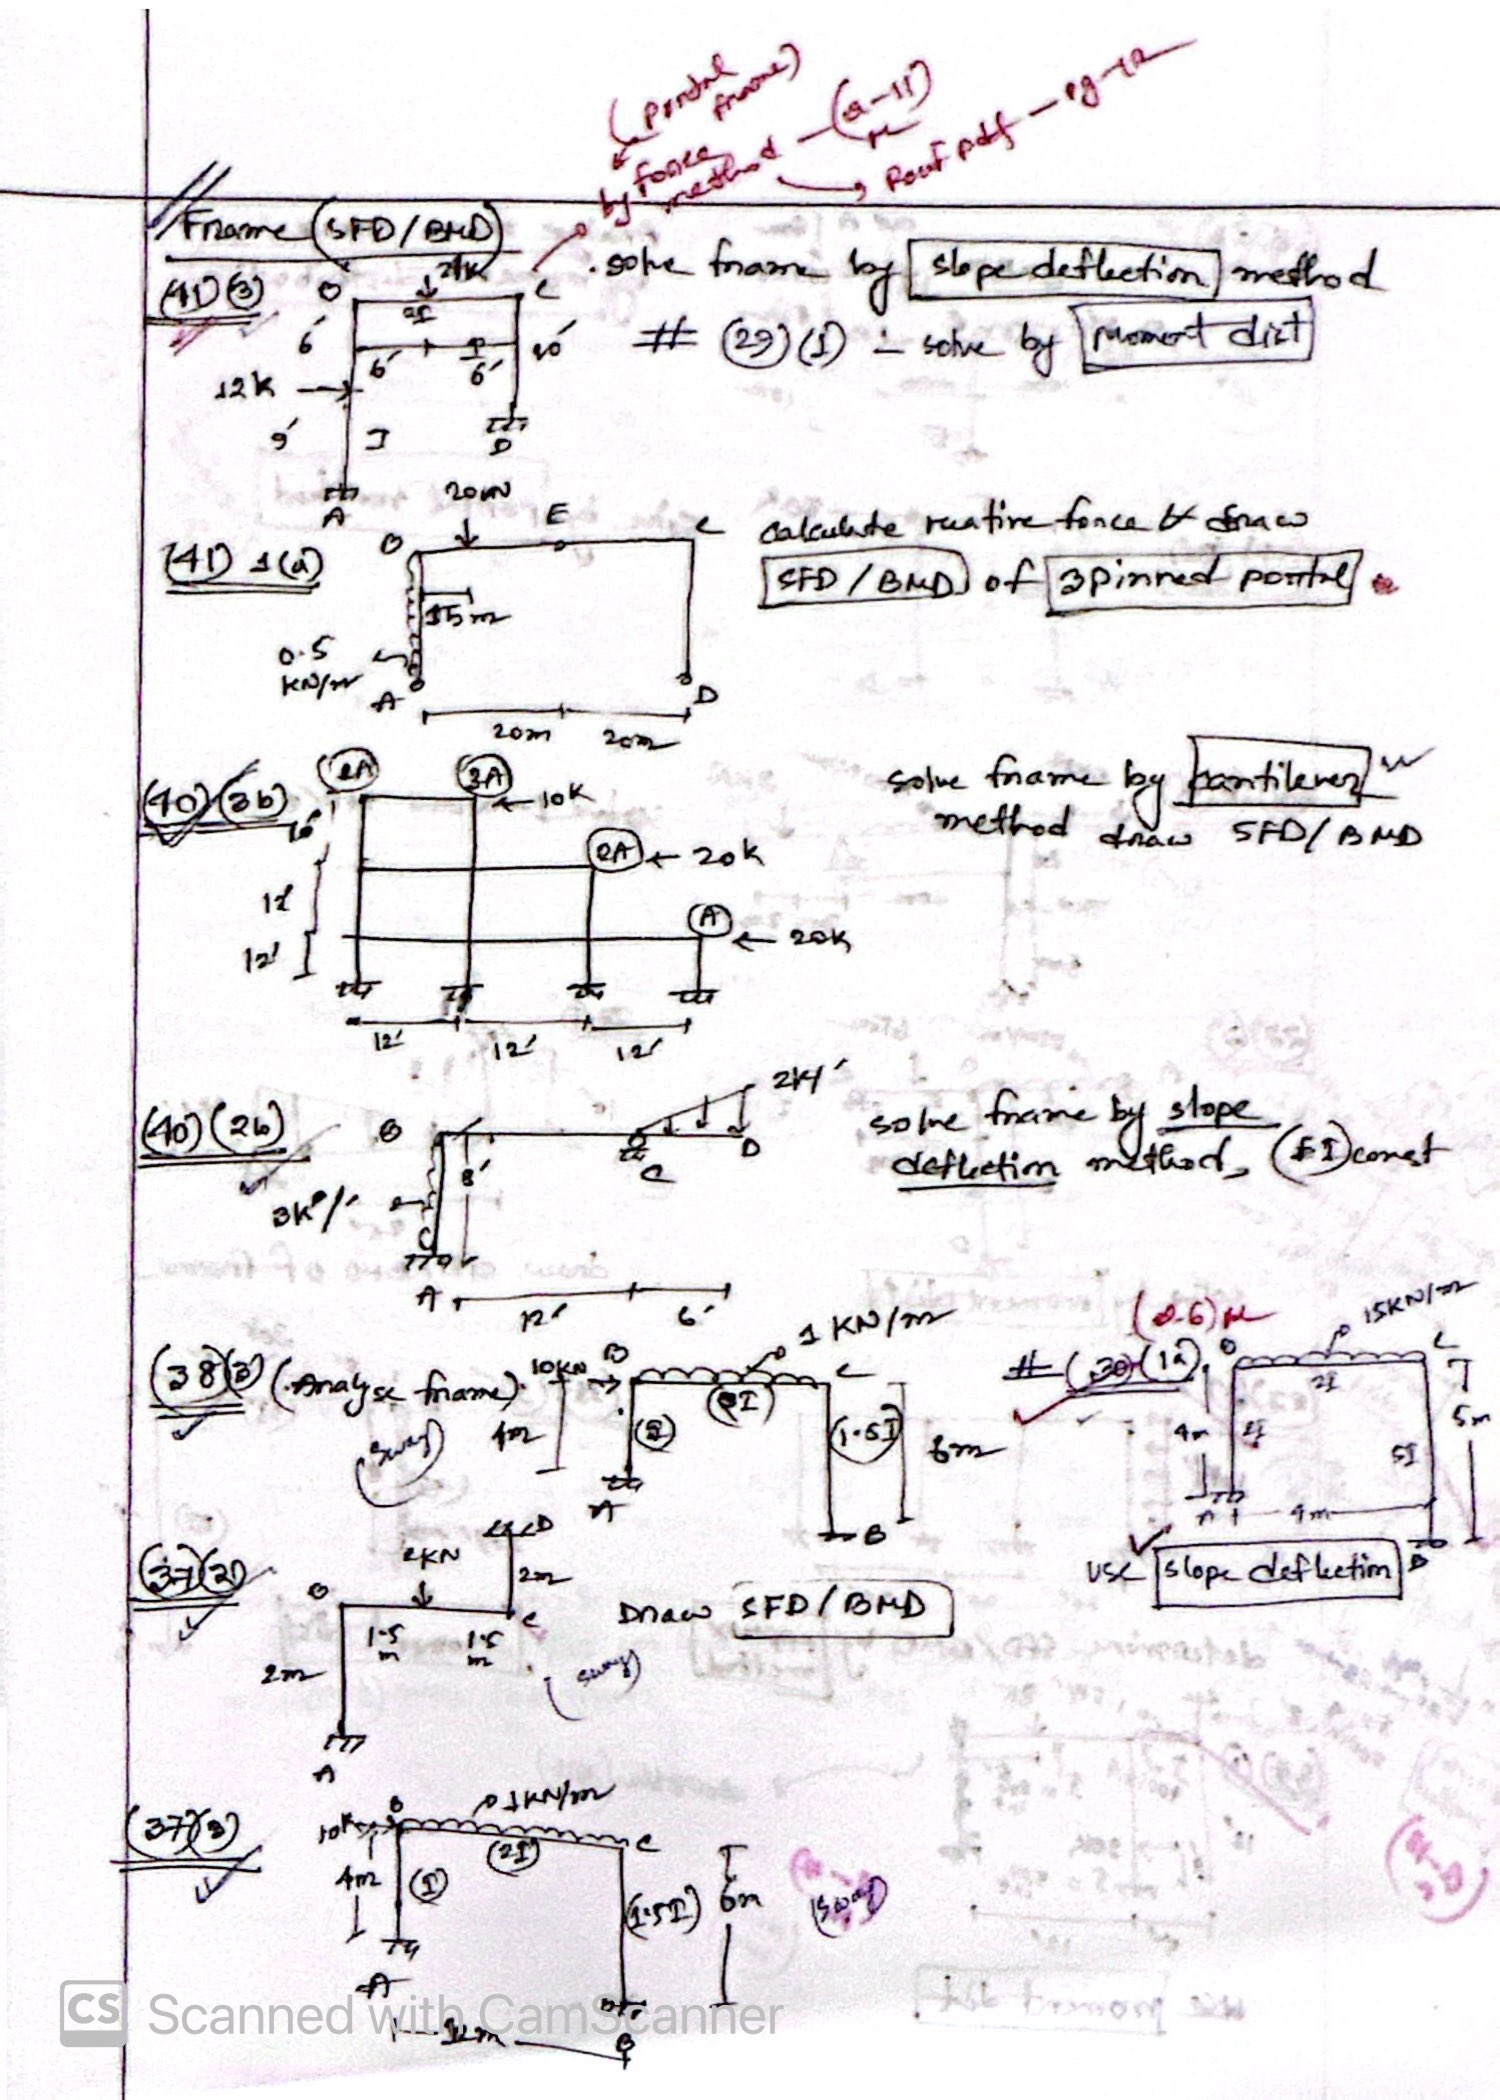 (portal frame)
by force method - (a-11)
Rout pdf - pg-12
Frame (SFD/BMD)
(41)(3)
B
24K
C
2I
. solve frame by slope deflection method
6'
6'
6'
10'
# (29)(1) - solve by moment dist
12K
9'
I
D
A
20KN
(41) 1(a)
B
E
C
calculate reative force & draw
SFD/BMD of 3 pinned portal
15m
0.5
KN/m
A
D
20m
20m
(40)(3b)
2A
3A
10K
solve frame by cantilever
method draw SFD/BMD
2A
20K
12'
A
20K
12'
12'
12'
12'
(40)(2b)
B
2K/'
solve frame by slope
deflection method, (EI) const
8'
C
D
3K/'
A
12'
6'
(38)(3) (Analyse frame)
(sway)
10KN
B
1 KN/m
C
4m
(I)
(1.5I)
6m
A
B
# (30)(1a)
B
15KN/m
C
2I
4m
5I
5m
A
4m
use slope deflection
(37)(2)
D
2KN
2m
B
C
Draw SFD/BMD
1.5 m
1.5 m
2m
(sway)
A
(37)(3)
B
1KN/m
(2I)
C
4m
(I)
(1.5I)
6m
(sway)
A
B
CS Scanned with CamScanner